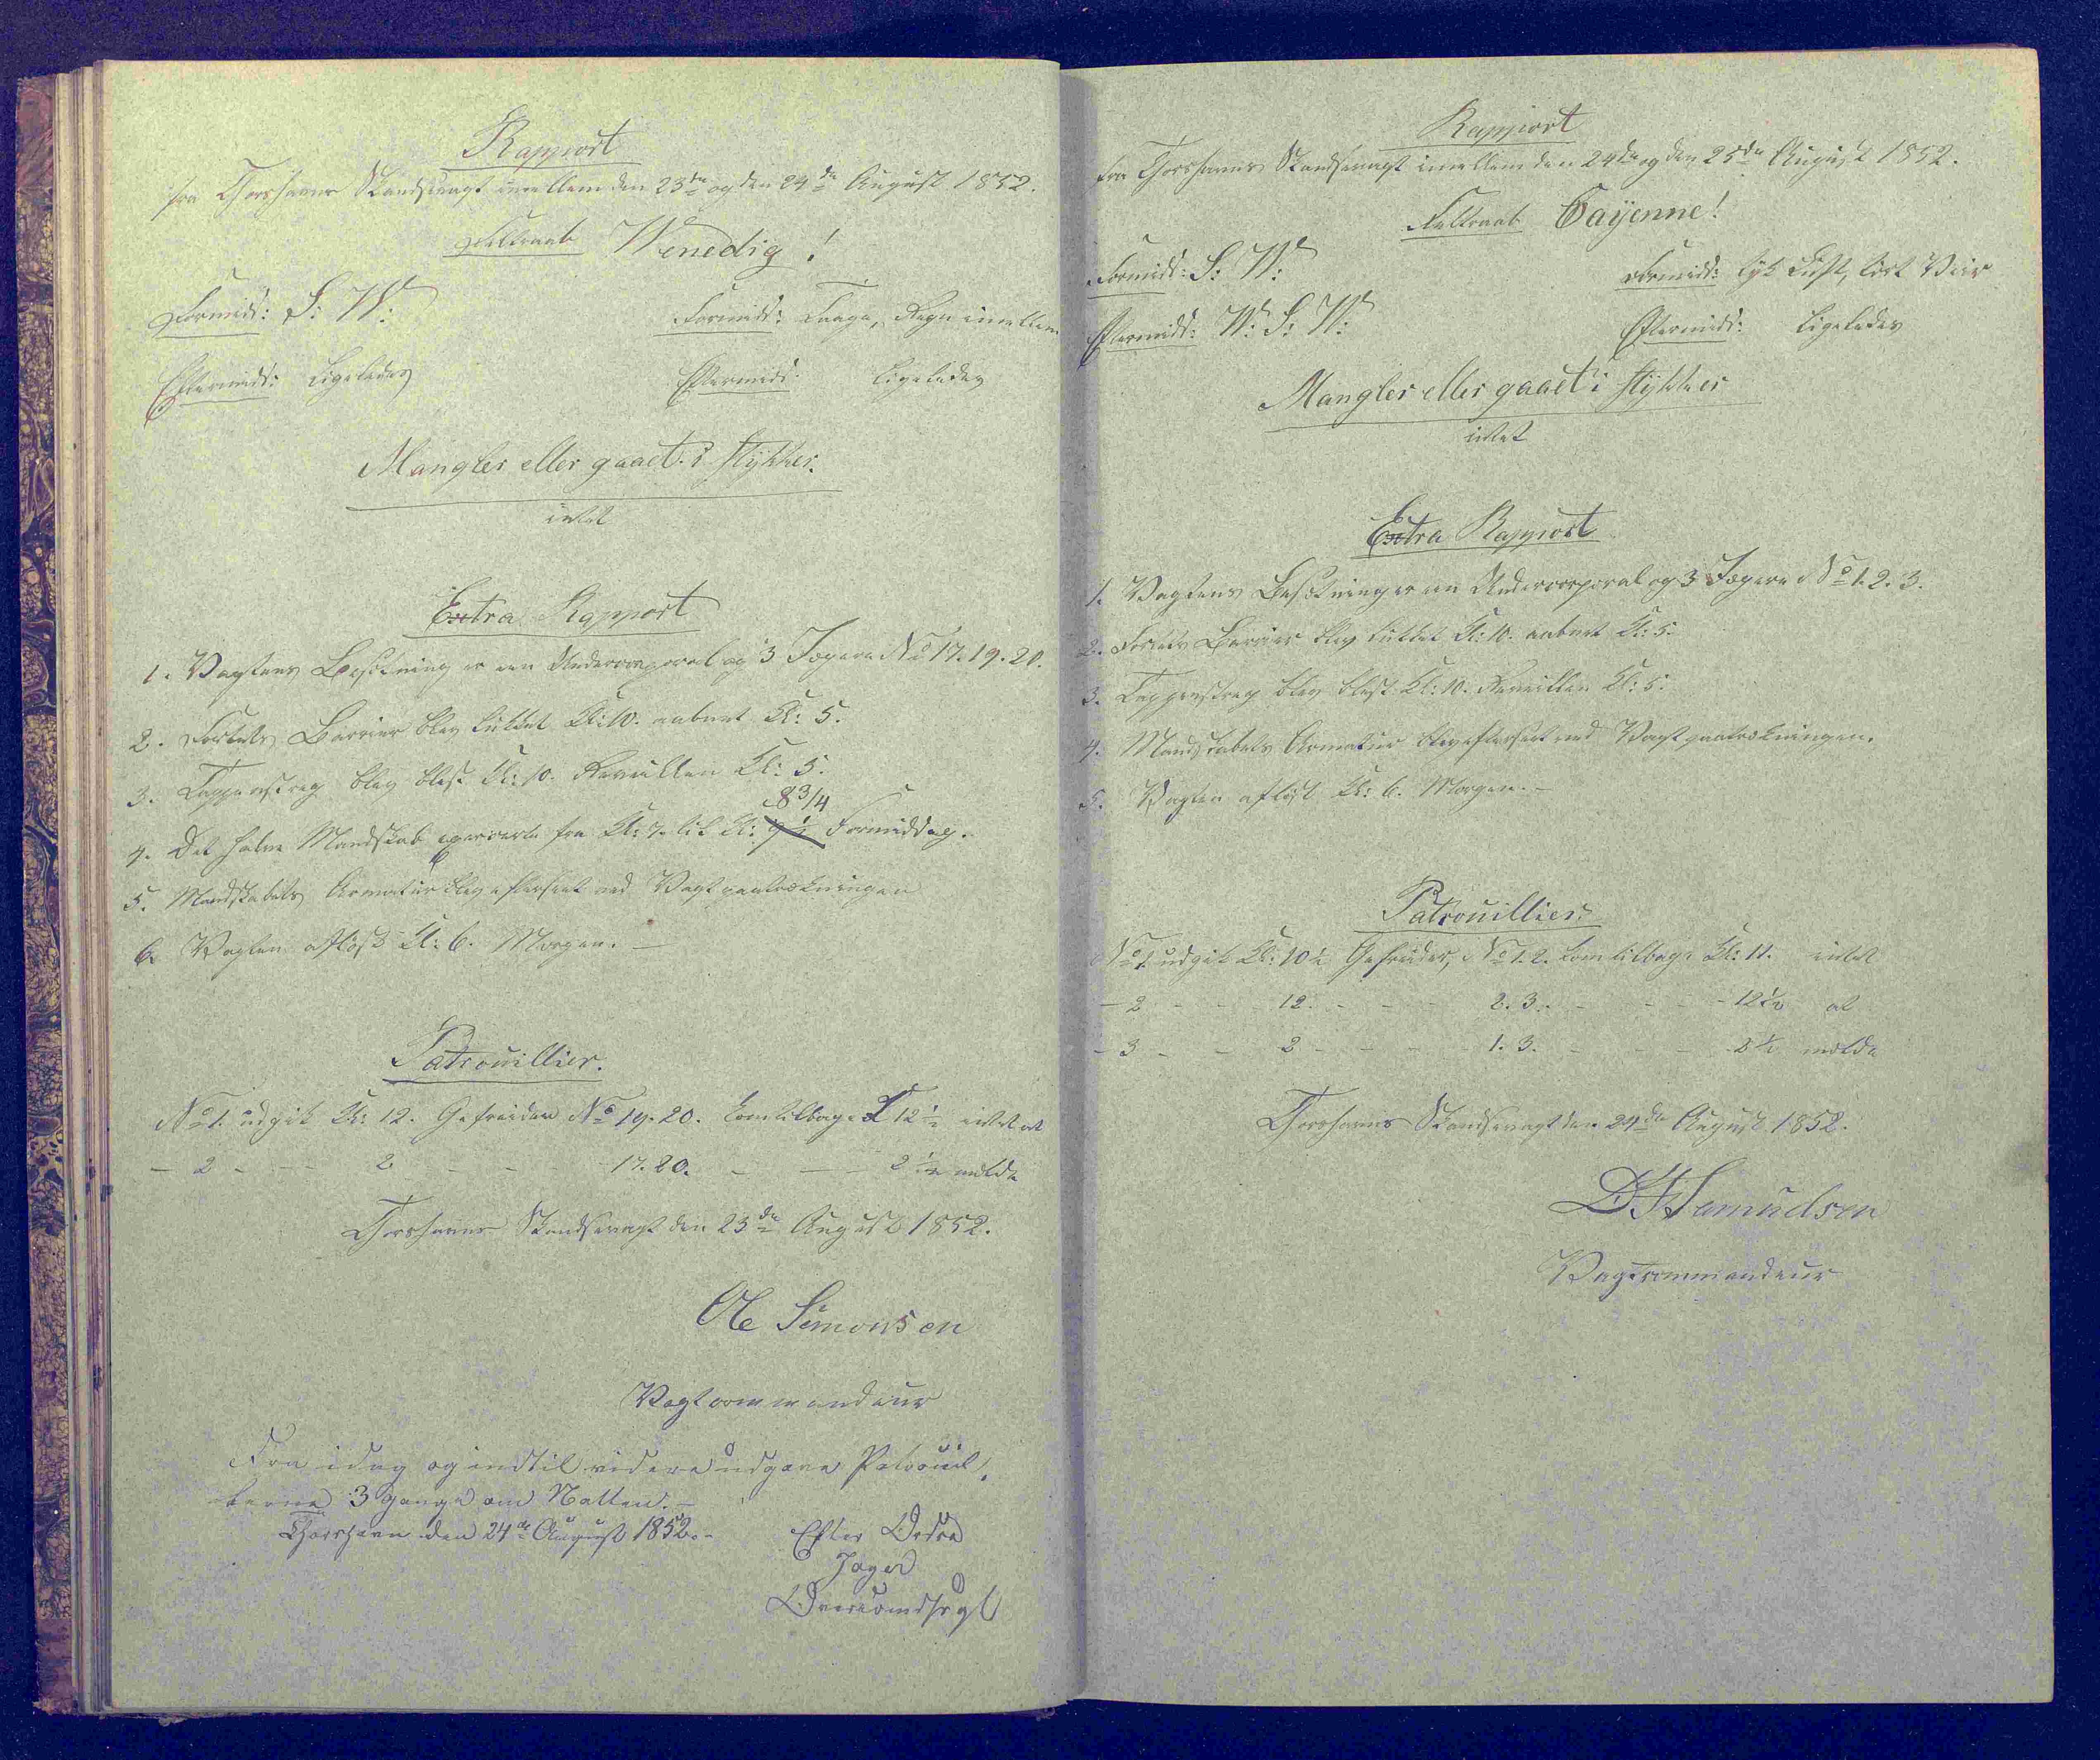 Rapport
fra Thorshavns Skandsevagt imellem den 23de og den 24de August 1852.
Feltraab Venedig!
Formidd: S: V:
Formidd: Taage, Regn imellem
Eftermidd: Ligeledes
Eftermidd: Ligeledes
Mangler eller gaaet i stykker.
intet
Extra Rapport
1. Vagtens Besætning er en Undercorporal og 3 Jægere No 17. 19. 20.
2. Fortets Barrier blev lukket Kl: 10. aabnet Kl: 5.
3. Tappenstreg blev blæst Kl: 10. Reveillen Kl: 5.
8 3/4
4. Det halve Mandskab exercerte fra Kl: 7. til Kl: Formiddag.
5. Mandskabets Armatur blev efterseet ved Vagtparatrækningen
6. Vagten afløst Kl: 6. Morgen. —
Patrouillier.
No 1. udgik Kl: 12. Gefreider No 19. 20. kom tilbage Kl 12 1/2 intet at
— 2 - - - 2 - - - 17. 20. - - - 2 1/2 melde
Thorshavns Skandsevagt den 23de August 1852.
Ole Simonsen
Vagtcommandeur
Fra idag og indtil videre udgaae Patrouil-
lerne 3 gange om Natten. —
Thorshavn den 24de August 1852. -
Efter Ordre
Jager
Rapport
fra Thorshavns Skandsevagt imellem den 24de og den 25de August 1852.
Feltraab Cayenne!
Formidd: S: V:
Formidd: tyk Luft, tørt Veir
Eftermidd: V: S: V:
Eftermidd: Ligeledes
Mangler eller gaaet i stykker
intet
Extra Rapport
1. Vagtens Besætning er en Undercorporal og 3 Jægere No 1. 2. 3.
2. Fortets Barrier blev lukket Kl: 10. aabnet Kl: 5.
3. Tappenstreg blev blæst Kl: 10. Reveillen Kl: 5.
4. Mandskabets Armatur blev efterseet ved Vagtparatrækningen.
5. Vagten afløst Kl: 6. Morgen. —
Patrouillier.
No 1. udgik Kl: 10 1/2 Gefreider, No 1. 2. kom tilbage Kl: 11. intet
— 2 - - - 12. - - - 2. 3. - - - 12 1/2 at
— 3 - - - 2 - - - 1. 3. - - - 2 1/2 melde
Thorshavns Skandsevagt den 24de August 1852.
Samuelsen
Vagtcommandeur